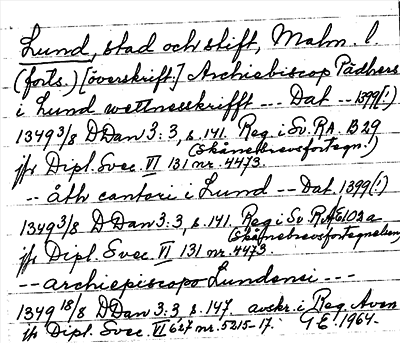 Lund, stad och stift, Malm. l
(forts.) [överskrift:] Archiebiscop Pädhers
i Lund wettnesskrifft --- Dat --1399(!)
1349 3/8 DDan 3:3, s.141. Reg i Sv.RA. B29
(Skånebrevsförtegn.!)
jfr Dipl. Svec. VI 131 nr. 4473.
-- åth cantori i Lund -- Dat. 1399(!)
1349 3/8 DDan 3:3, s.141. Reg i Sv RA 102a
(Skånebrevsförtegnelsen)
jfr Dipl. Svec. VI 131 nr. 4473.
-- archiepiscopo Lundensi ---
1349 18/8 DDan 3:3 s.147. avskr. i Reg. Aven
jfr Dipl. Svec. VI 627 nr. 5215-17. 1964.